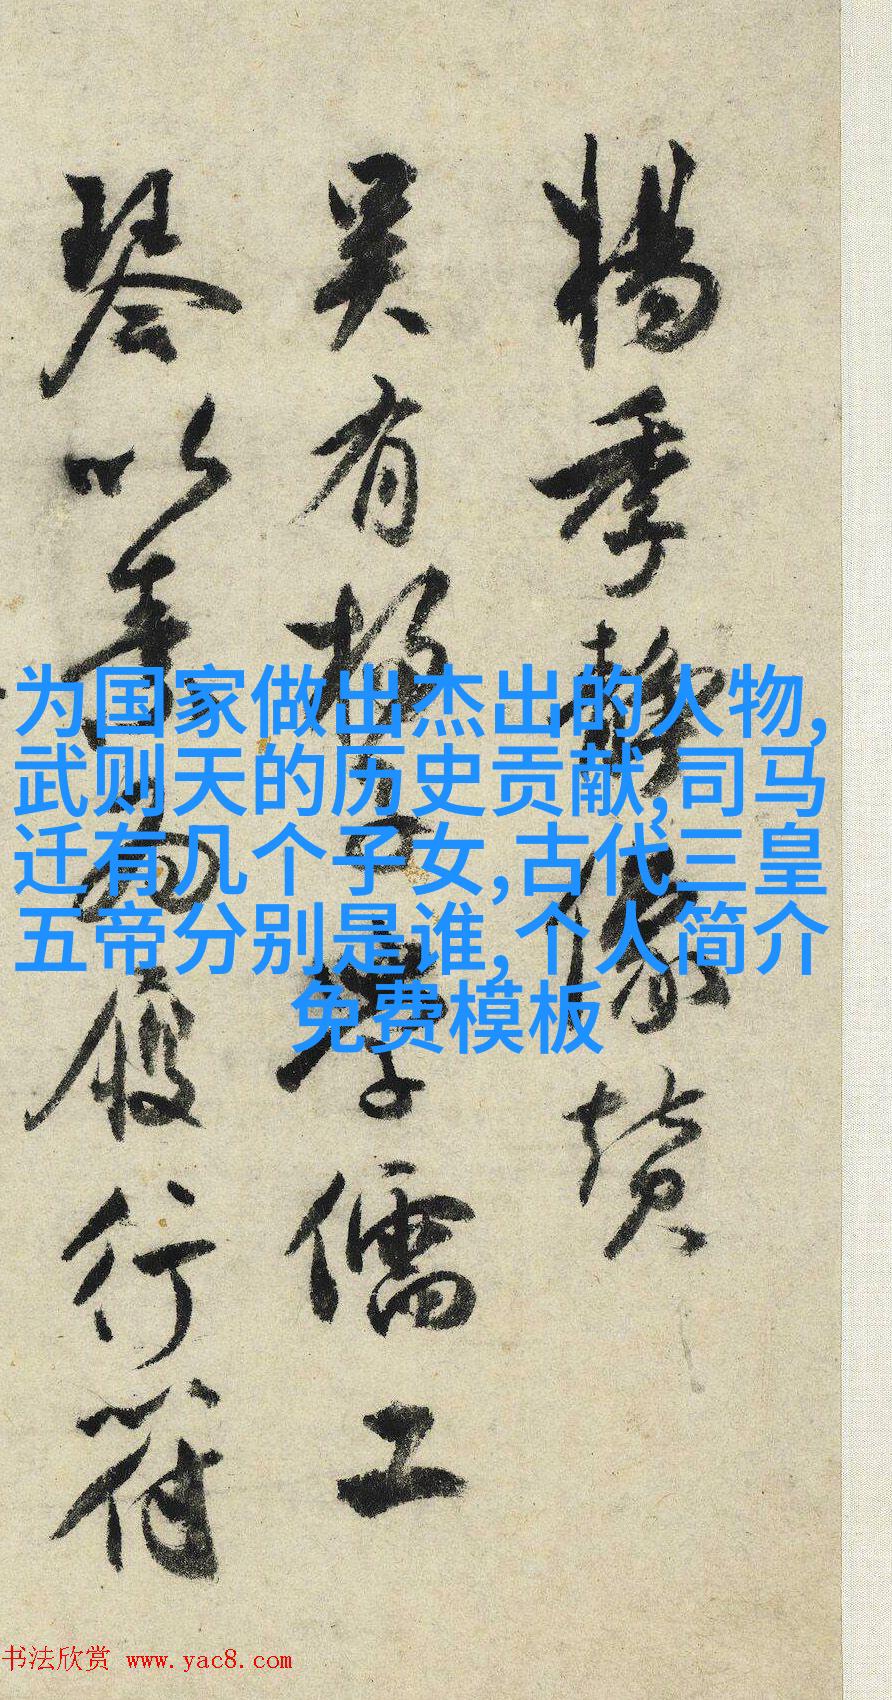 楊季靜像贊
吴有楊子學儒工
琴以書為履行符
为国家做出杰出的人物,
武则天的历史贡献,司马
迁有几个子女,古代三皇
五帝分别是谁,个人简介
免费模板
书法欣赏 www.yac8.com